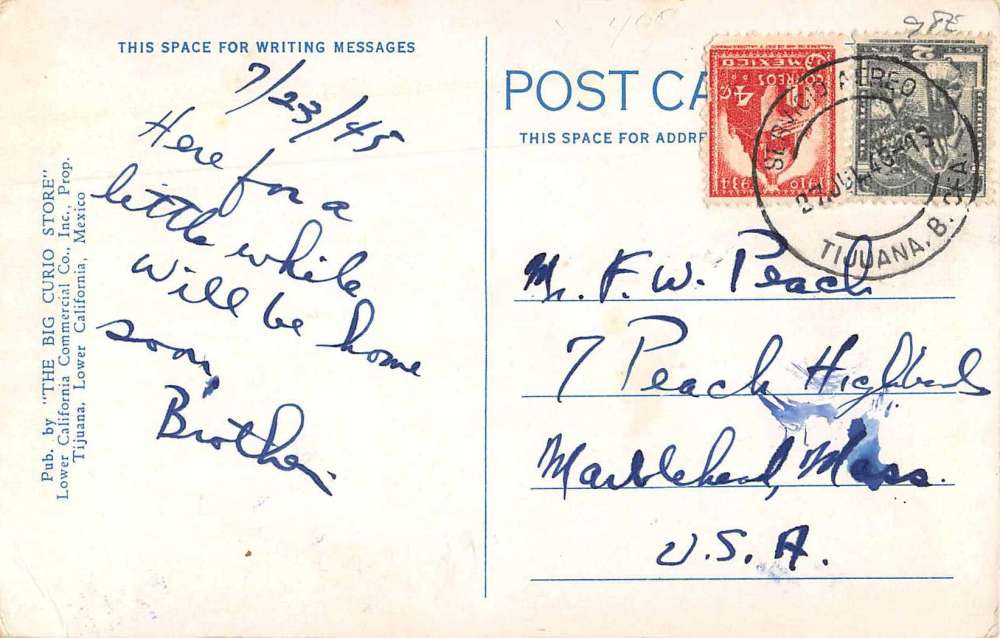 THIS SPACE FOR WRITING MESSAGES
7/23/45
Here for a
little while
Will be home
soon,
Brother
Pub. by "THE BIG CURIO STORE"
Lower California Commercial Co., Inc., Prop.
Tijuana, Lower California, Mexico
POST CA
THIS SPACE FOR ADDRE
CORREOS MEXICO
4 ¢
1910 1934
SERVICIO AEREO
27 JUL
TIJUANA, B. CFA
Mr. F. W. Peach
7 Peach Highlands
Marblehead, Mass.
U.S.A.